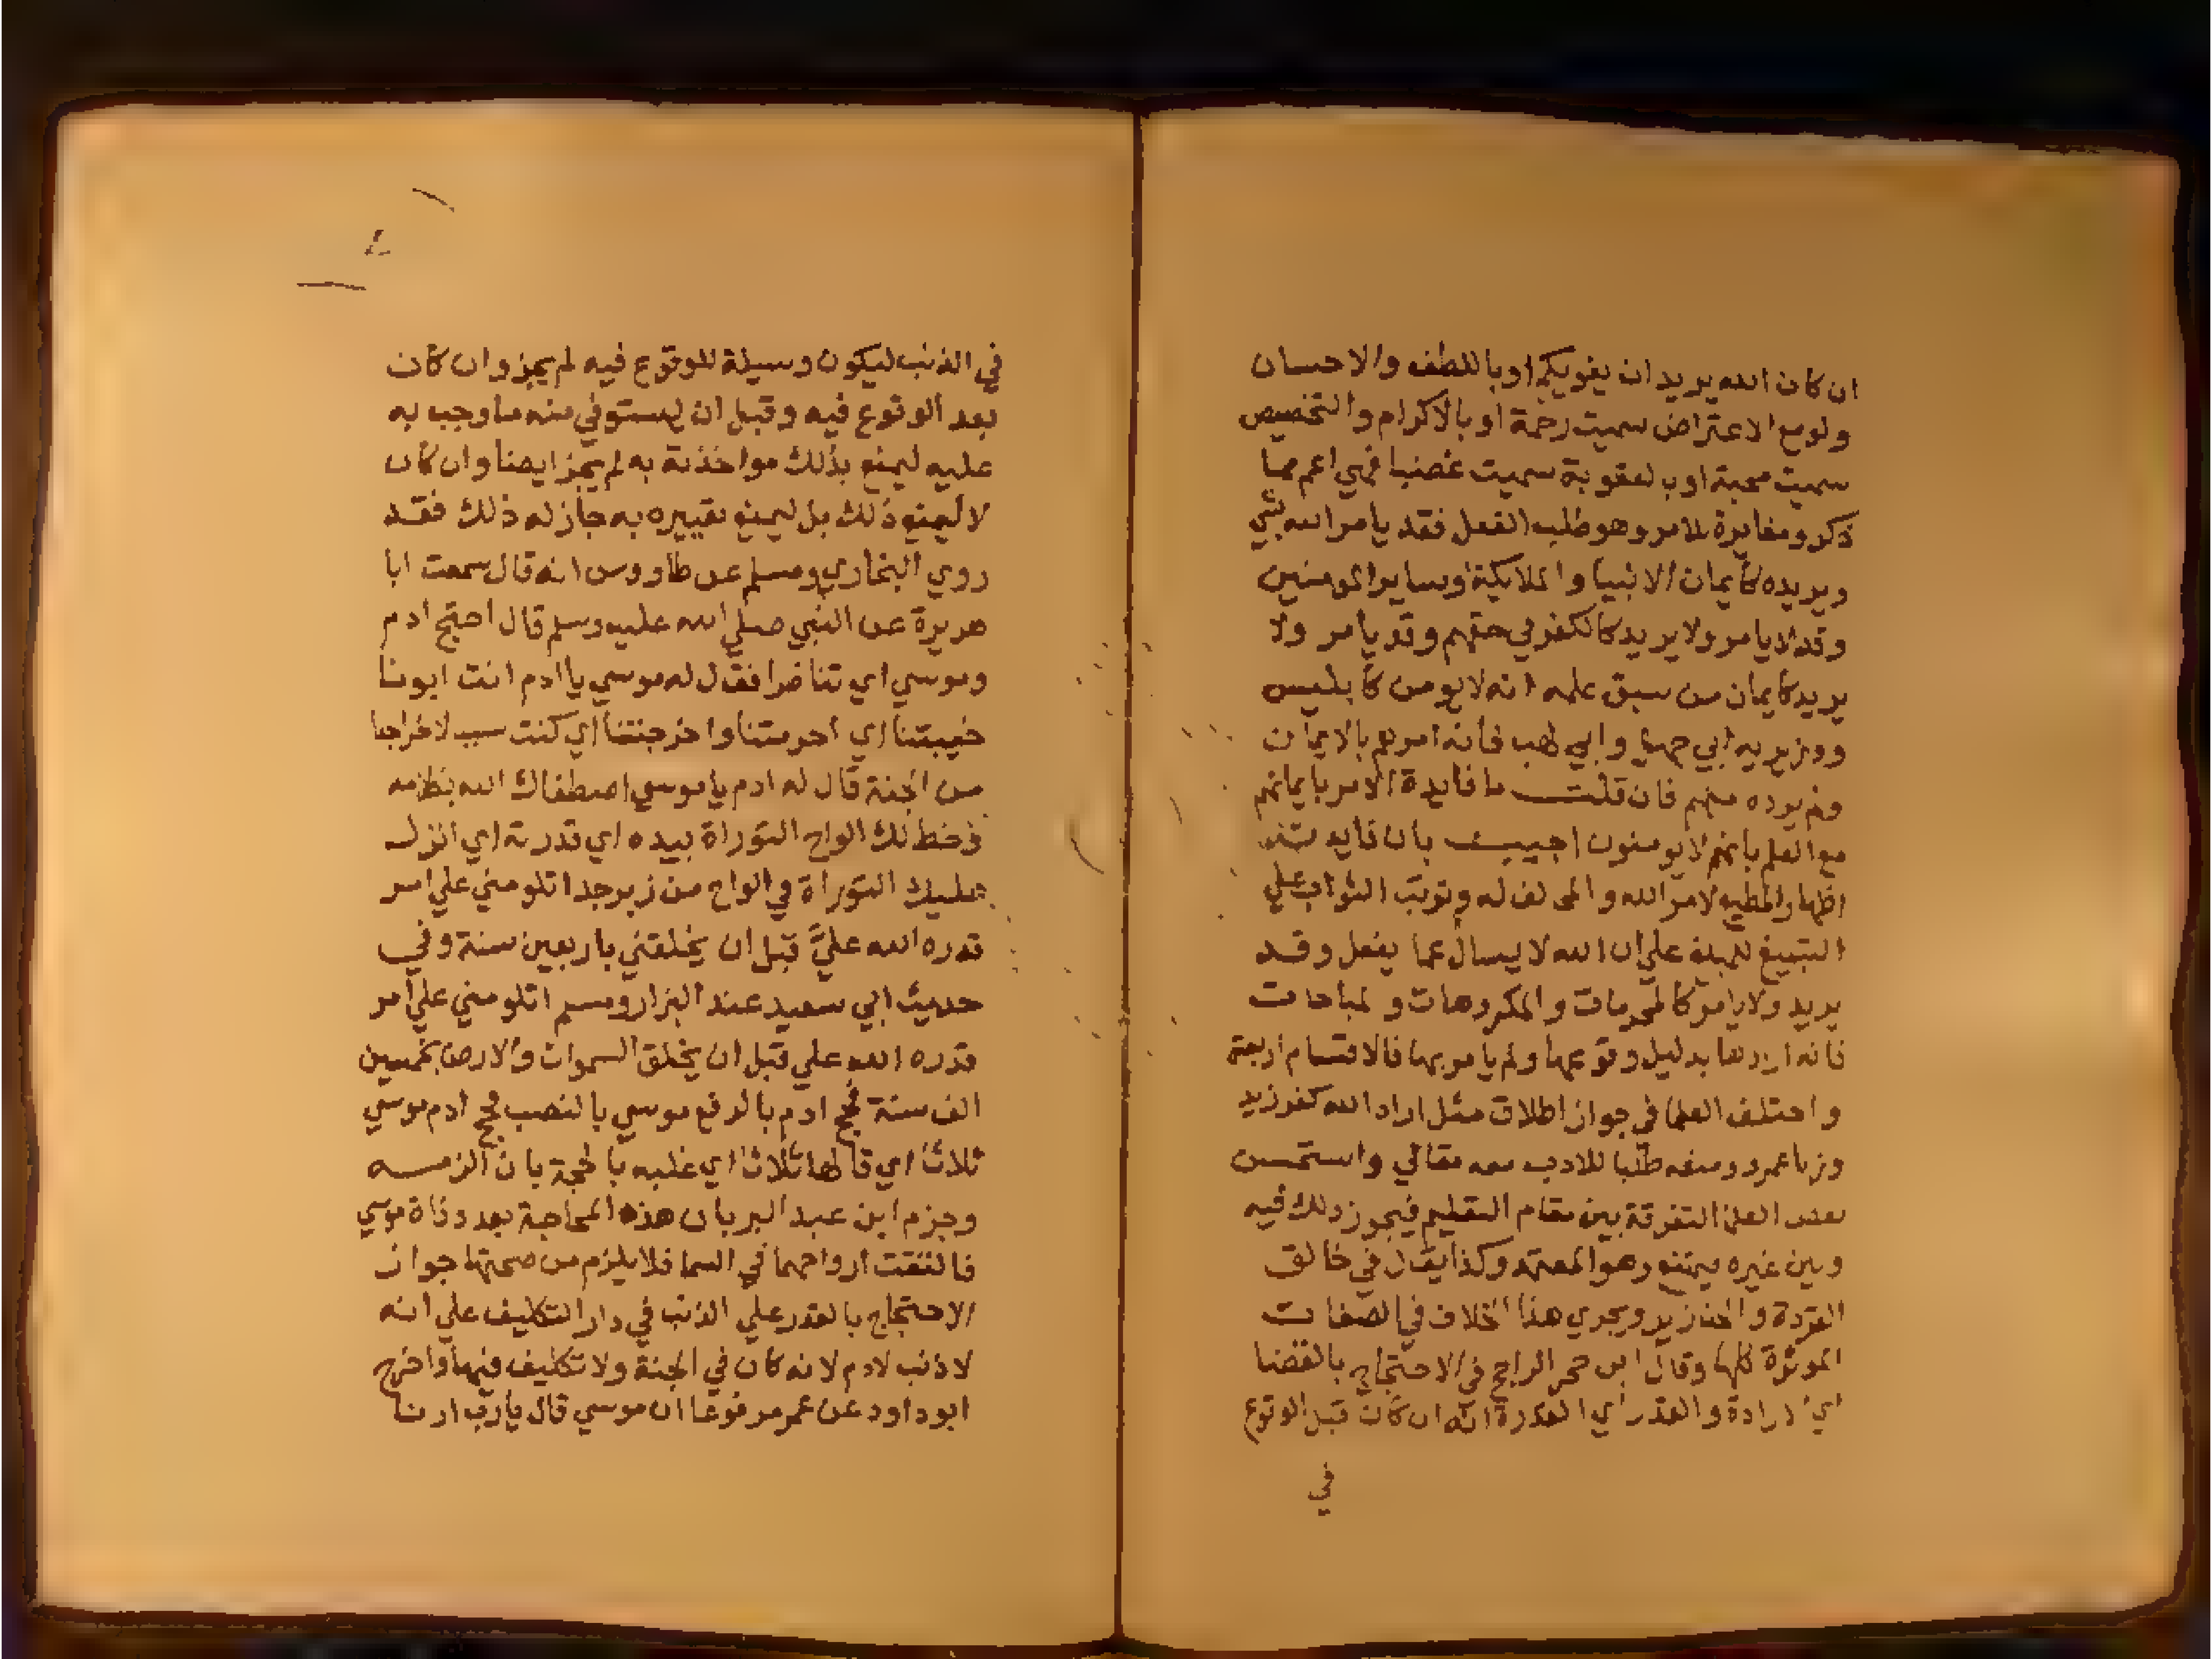 ان كان الله يريد ان يغويكم او باللطف والاحسان
ولو مع الاعتراض سميت رحمة او بالاكرام والتخصيص
سميت محبة او بالعقوبة سميت غضبا فهي اعم مما
ذكر ومغايرة للامر وهو طلب الفعل فقد يامر الله بشي
ويريده كأيمان الانبيا والملايكة وساير المومنين
وقد لا يامر ولا يريد كالكفر في حقهم وقد يأمر ولا
يريد كايمان من سبق علمه انه لا يومن كأبليس
ووزيريه ابي جهل وابي لهب فأنه امرهم بالايمان
ولم يرده منهم فان قلت ما فايدة الامر بايمانهم
مع العلم بانهم لا يومنون اجيب بان فايدته
اظهار المطيع لامر الله والمخالف له وترتب الثواب علي
التبليغ للمبلغ علي ان الله لا يسال عما يفعل وقد
يريد ولا يامر كالمحرمات والمكروهات والمباحات
فانه ارادها بدليل وقوعها ولم يامر بها فالاقسام اربعة
واختلف العلما في جواز اطلاق مثل اراد الله كفر زيد
وزنا عمرو ومنعه طلبا للادب معه تعالي واستحسن
بعض العلما التفرقة بين مقام التعليم فيجوز ذلك فيه
وبين غيره فيمتنع وهو المعتمد وكذا يقال في خالق
القردة والخنازير ويجري هذا الخلاف في الصفات
الموثرة كلها وقال ابن حجر الراجح في الاحتجاج بالقضا
اي الارادة والقدر اي القدرة انه ان كان قبل الوقوع
في
في الذنب ليكون وسيلة للوقوع فيه لم يجز وان كان
بعد الوقوع فيه وقبل ان يستوفي منه ما وجب به
عليه ليمنع بذلك مواخذته به لم يجز ايضا وان كان
لا ليمنع ذلك بل ليمنع تعييره به جاز له ذلك فقد
روي البخاري ومسلم عن طاووس انه قال سمعت ابا
هريرة عن النبي صلي الله عليه وسلم قال احتج ادم
وموسي اي تناضرا فقال له موسي يا ادم انت ابونا
خيبتنا اي احرمتنا واخرجتنا اي كنت سبب لاخراجنا
من الجنة قال له ادم يا موسي اصطفاك الله بكلامه
وخط لك الواح التوراة بيده اي قدرته اي انزل
عليك التوراة في الواح من زبرجد اتلومني علي امر
قدره الله عليَّ قبل ان يخلقني باربعين سنة وفي
حديث ابي سعيد عند البزار ومسلم اتلومني علي امر
قدره الله علي قبل ان يخلق السموات والارض بخمسين
الف سنة فحج ادم بالرفع موسي بالنصب فحج ادم موسي
ثلاثا اي قالها ثلاثا اي غلبه بالحجة بان الزمه
وجزم ابن عبد البر بان هذه المحاجة بعد وفاة موسي
فالتقت ارواحهما في السما فلا يلزم من صحتها جواز
الاحتجاج بالقدر علي الذنب في دار التكليف علي انه
لا ذنب لادم لانه كان في الجنة ولا تكليف فيها واخرج
ابو داود عن عمر مرفوعا ان موسي قال يارب ارنا